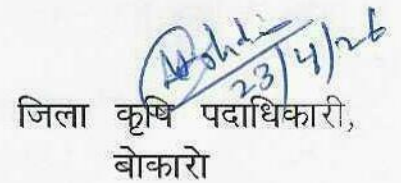 23/4/26
जिला कृषि पदाधिकारी,
बोकारो